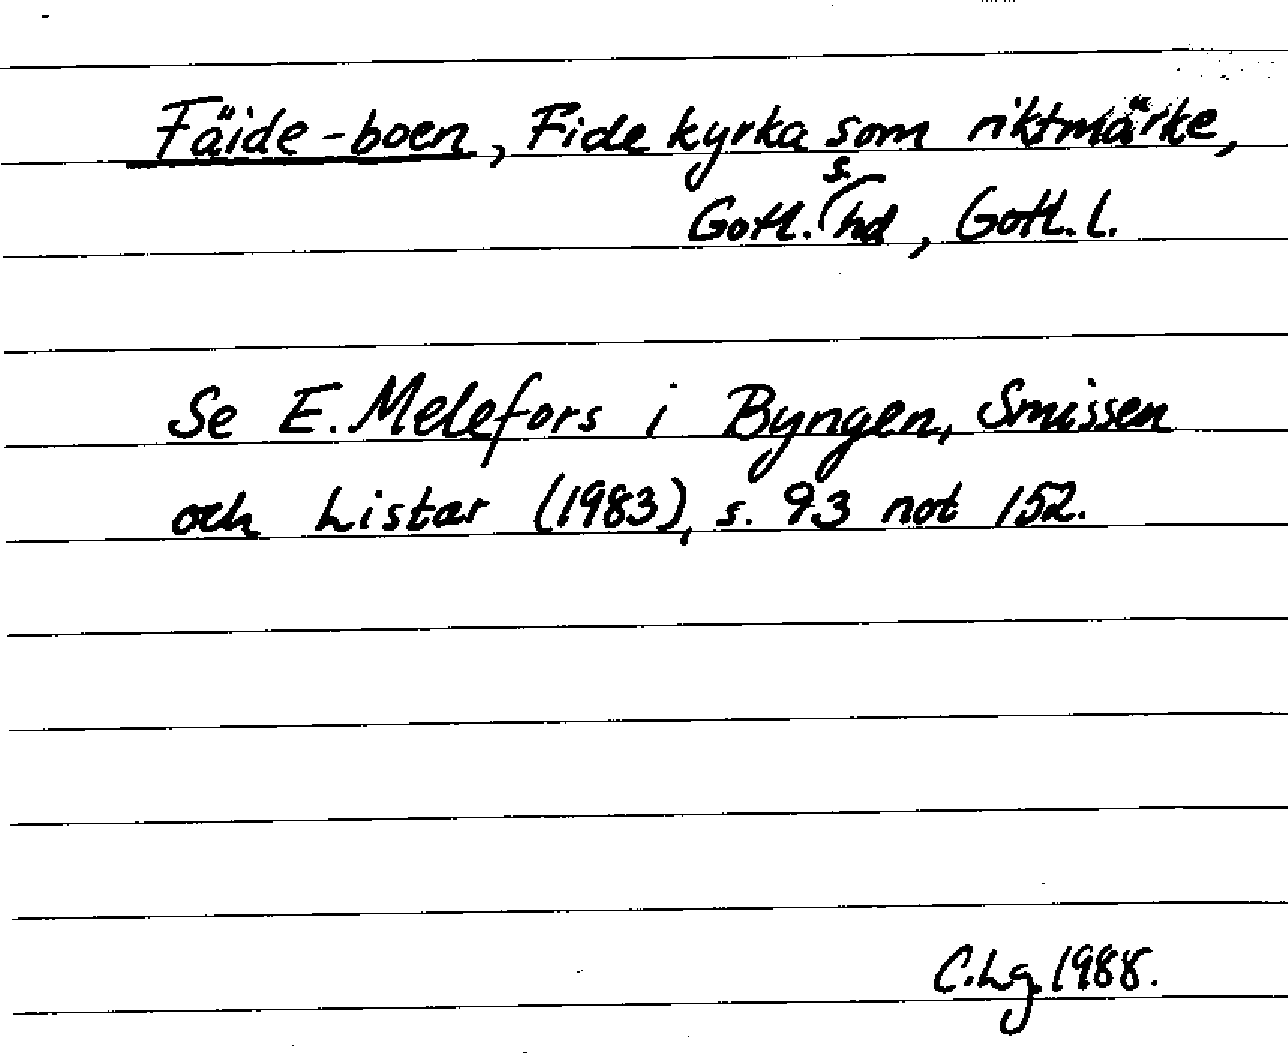 Fäide-boen, Fide kyrka som riktmärke,
Gotl. s. hd, Gotl. l.
Se E. Melefors i Byngen, Smissen
och Listar (1983), s. 93 not 152.
C.Lg. 1988.